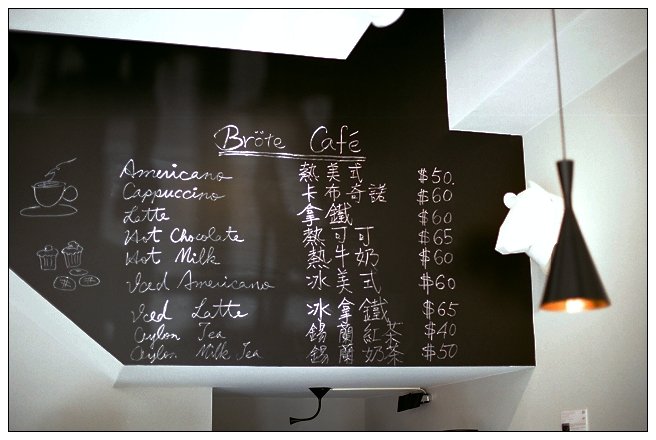 Bröte Café
Americano 熱美式 $50.
Cappuccino 卡布奇諾 $60
Latte 拿鐵 $60
Hot Chocolate 熱可可 $65
Hot Milk 熱牛奶 $60
Iced Americano 冰美式 $60
Iced Latte 冰拿鐵 $65
Ceylon Tea 錫蘭紅茶 $40
Ceylon Milk Tea 錫蘭奶茶 $50